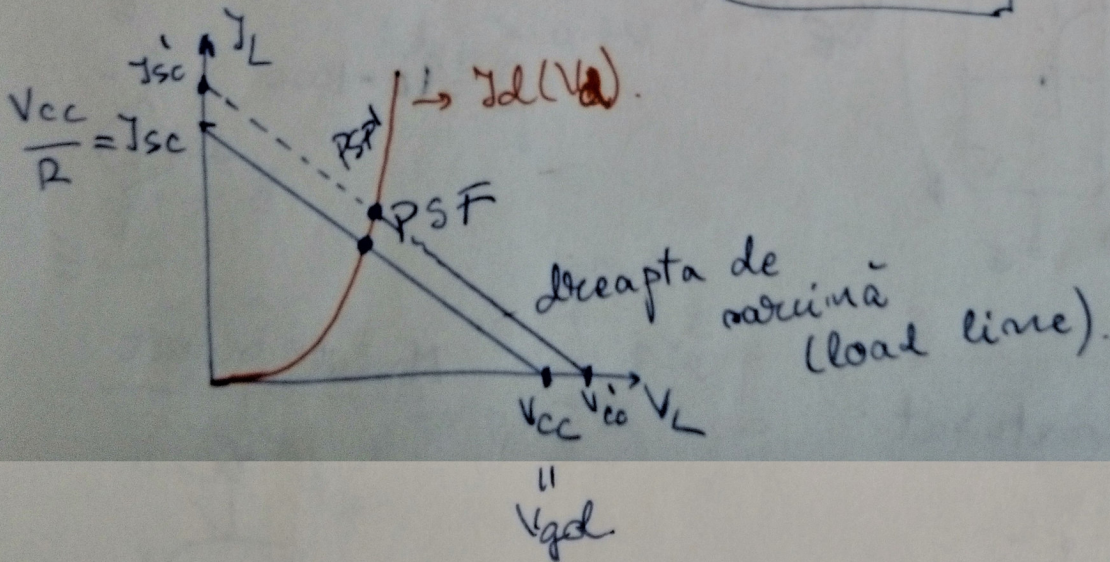 I_L
I'sc
Vcc
R
= Isc
PSF'
→ Id(Vd).
PSF
dreapta de
sarcină
(load line).
Vcc
V'cc
V_L
=
Vgol